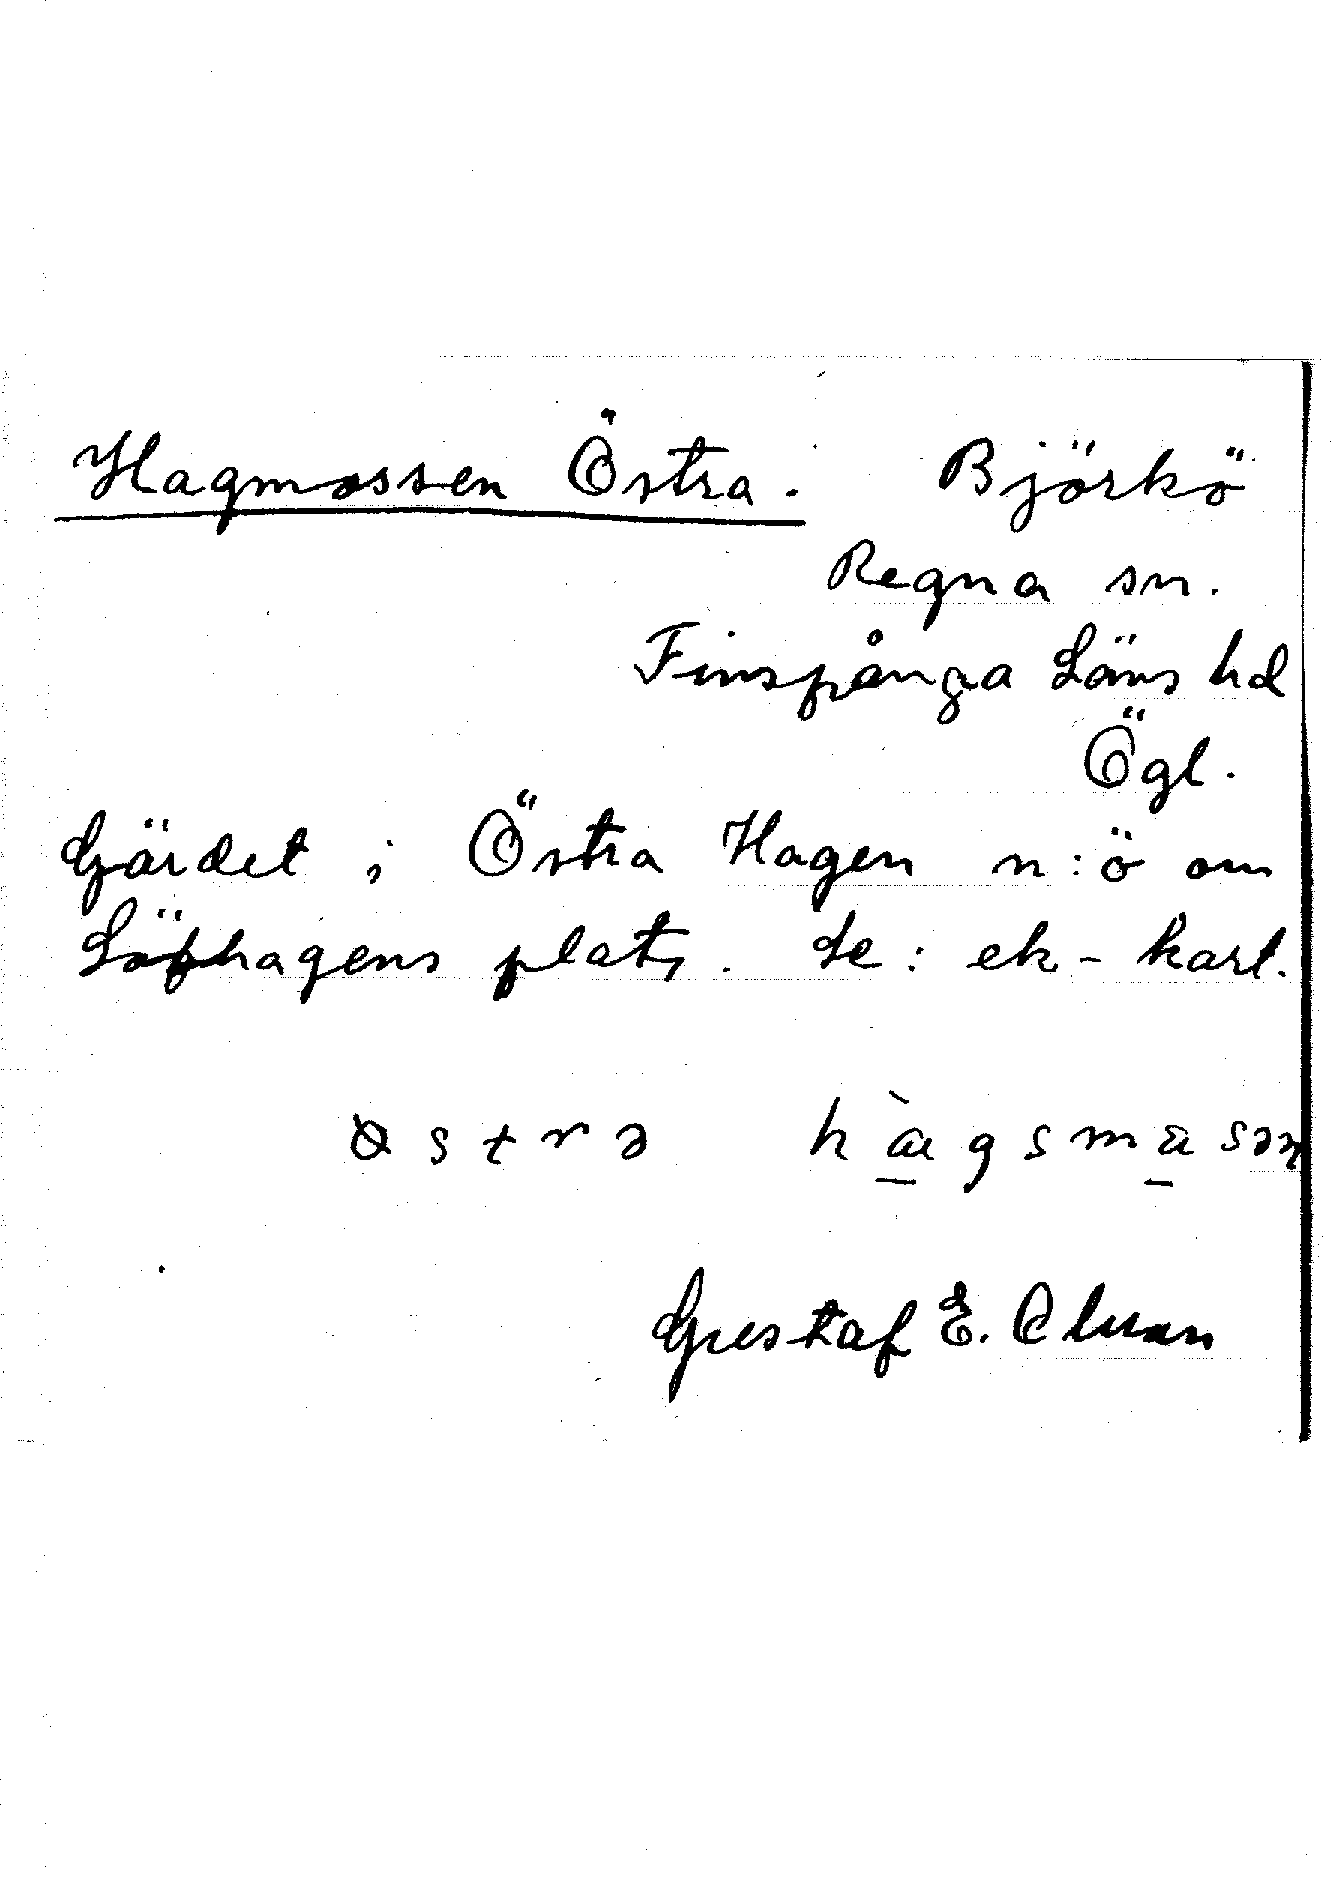 Hagmossen Östra. Björkö
Regna sn.
Finspånga Läns hd
Ögl.
Gärdet i Östra Hagen n:ö om
Löfhagens plats. Se: ek-kart.
østrə hàgsmåsən
Gustaf E. Olsson